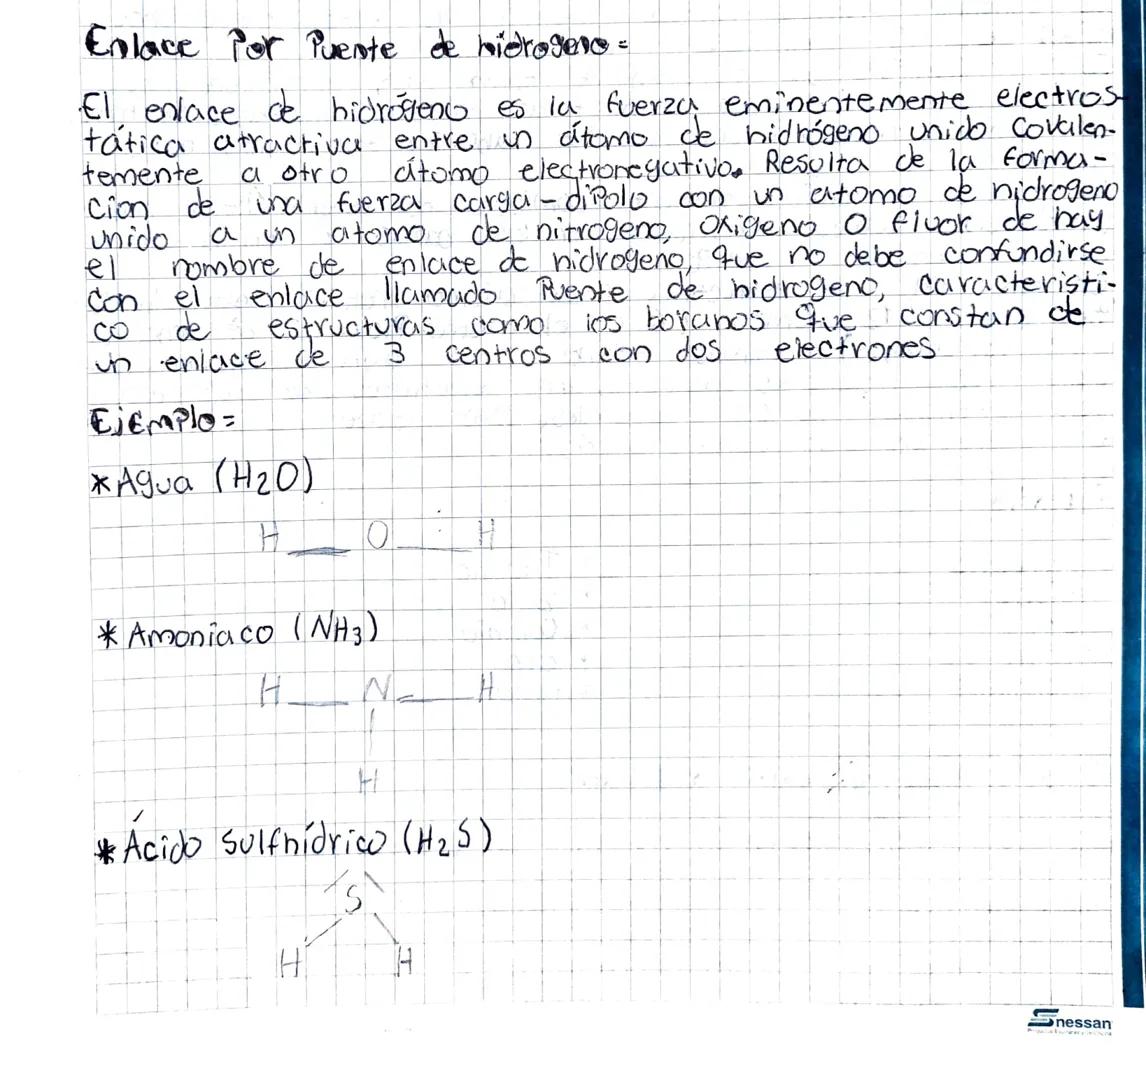 Enlace Por Puente de hidrogeno =
El enlace de hidrógeno es la fuerza eminentemente electros-
tática atractiva entre un átomo de hidrógeno unido covalen-
temente a otro átomo electronegativo. Resulta de la forma-
cion de una fuerza carga - dipolo con un atomo de hidrogeno
unido a un atomo de nitrogeno, oxigeno o fluor de hay
el nombre de enlace de hidrogeno, que no debe confundirse
con el enlace llamado Puente de hidrogeno, caracteristi-
co de estructuras como los boranos que constan de
un enlace de 3 centros con dos electrones
Ejemplo =
* Agua (H2O)
H O H
* Amoniaco (NH3)
H N H
H
* Ácido sulfhídrico (H2S)
S
H H
Snessan